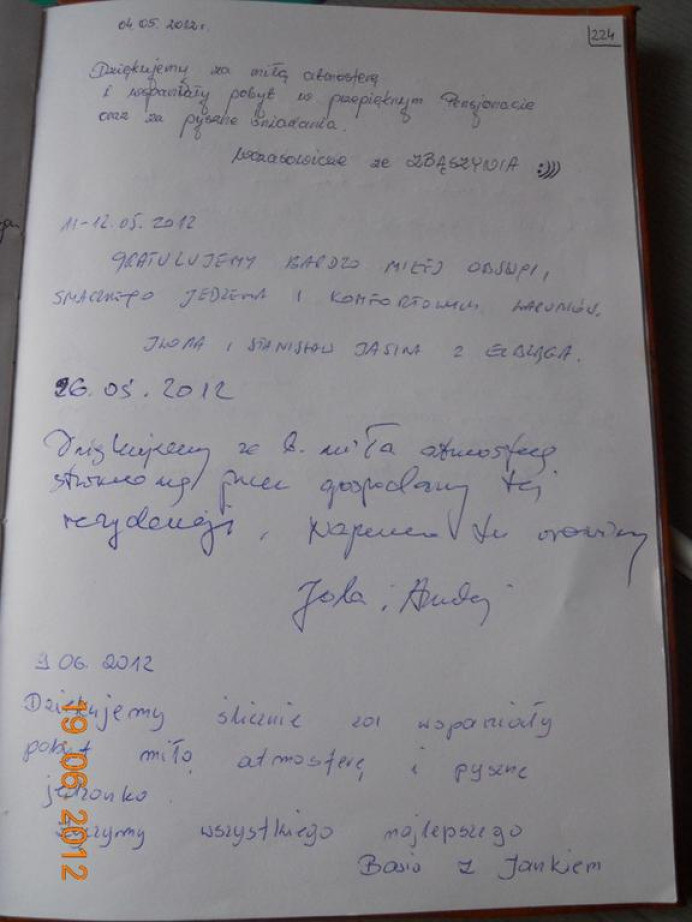 04.05.2012r.
224
Dziękujemy za miłą atmosferę
i wspaniały pobyt w przepięknym Pensjonacie
oraz za pyszne śniadania.
Wczasowicze ze ZBĄSZYNIA :)))
11-12.05.2012
GRATULUJEMY BARDZO MIŁEJ OBSŁUGI,
SMACZNEGO JEDZENIA I KOMFORTOWYCH WARUNKÓW.
IWONA I STANISŁAW JASINA Z ELBLĄGA.
26.05.2012
Dziękujemy za b. miłą atmosferę
stworzoną przez gospodarzy tej
rezydencji, napewno tu wrócimy
Jola i Andrzej
9 06. 2012
Dziękujemy ślicznie za wspaniały
pobyt miłą atmosferę i pyszne
jedzonko.
Życzymy wszystkiego najlepszego
Basia z Jankiem
19 06 2012